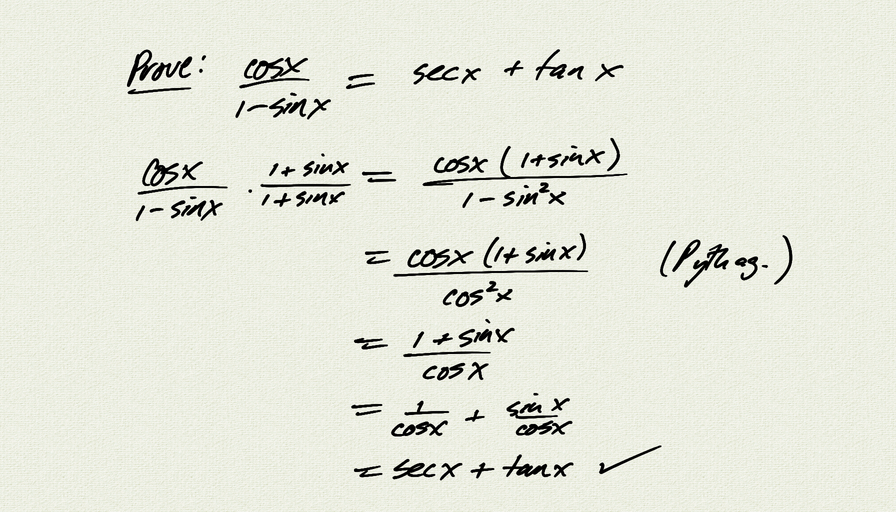 Prove: cosx / 1-sinx = secx + tan x
cosx / 1-sinx · 1+sinx / 1+sinx = cosx (1+sinx) / 1-sin²x
= cosx (1+sinx) / cos²x (Pythag.)
= 1+sinx / cosx
= 1 / cosx + sin x / cosx
= secx + tanx ✓